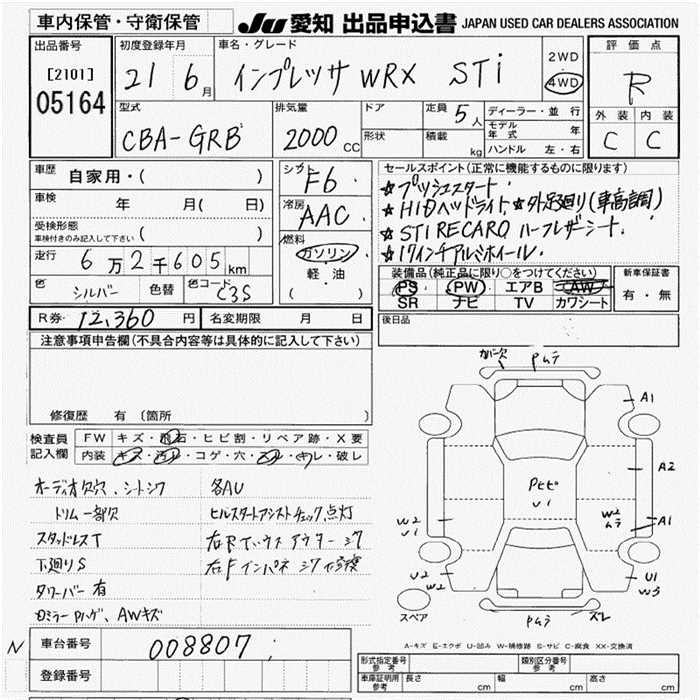 車内保管・守衛保管
JU 愛知 出品申込書 JAPAN USED CAR DEALERS ASSOCIATION
出品番号
[2101]
05164
初度登録年月
21 6月
車名・グレード
インプレッサ WRX STi
2WD
4WD
評価点
R
外装 内装
C C
型式
CBA-GRB
排気量
2000 CC
ドア
形状
定員 5人
積載 kg
ディーラー・並行
モデル年式 年
ハンドル 左・右
車歴
自家用・( )
車検 年 月( 日)
受検形態
車検付きのみ記入して下さい ( )
走行 6万2千605km
色 シルバー 色替 色コード C3S
シフト
F6
冷房
AAC
燃料
ガソリン
軽・油
( )
セールスポイント(正常に機能するものに限ります)
☆プッシュスタート.
☆HIDヘッドライト ☆外足廻り(車高調)
☆STI RECARO ハーフレザーシート.
☆17インチアルミホイール.
装備品(純正品に限り○をつけてください)
PS PW エアB AW
SR ナビ TV カワシート
新車保証書
有・無
R券 12,360 円 名変期限 月 日
後日品
注意事項申告欄(不具合内容等は具体的に記入して下さい)
修復歴 有 (箇所 )
検査員記入欄
FW キズ・飛石・ヒビ割・リペア跡・X要
内装 キズ・汚れ・コゲ・穴・スレ・キレ・破レ
オーディオ欠穴、シートシワ 各AU
トリム一部欠 ヒルスタートアシストチェック点灯
スタッドレスT
下廻りS
タワーバー有
ミラーPハゲ、AWキズ
ガバ欠 Pムラ
A1
A2
Pヒビ
U1
W2
ムラ
A1
W2
U1
U2
W2
U1
W3
Pムラ ズレ
スペア
A-キズ E-エクボ U-凹み W-補修跡 S-サビ C-腐食 XX-交換済
N 車台番号 008807
登録番号
形式指定番号 参考
類別区分番号 参考
車庫証明用 参考 長さ cm 幅 cm 高さ cm